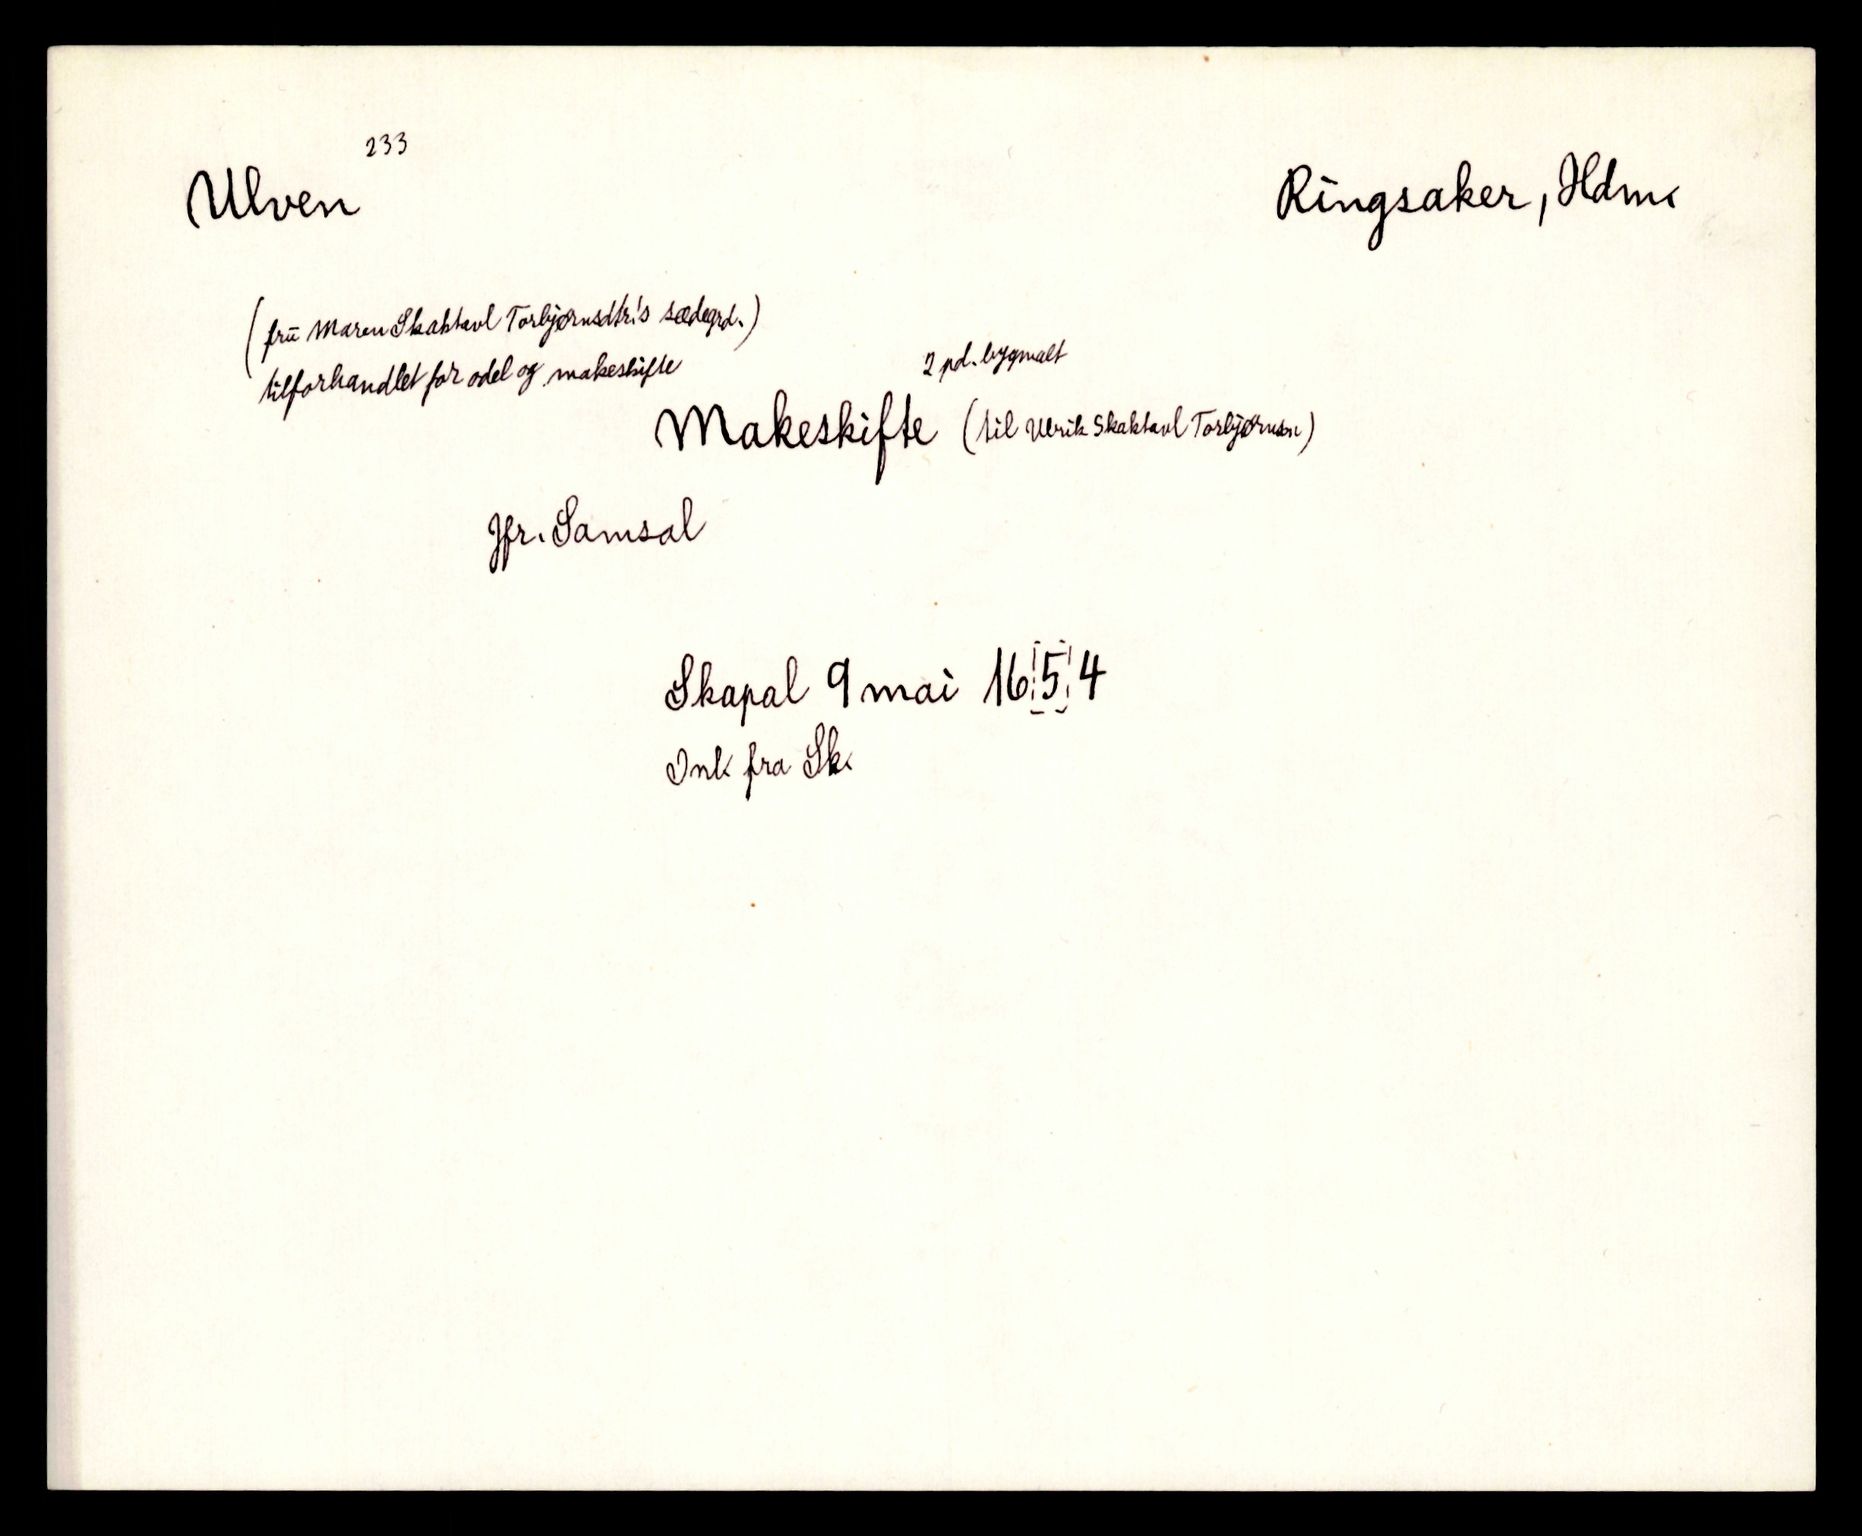 Ulven 233
Ringsaker, Hdm.
(frū Maren Skaktavl Torbjørnsdtr.'s sædegrd.)
tilforhandlet for odel og makeskifte
2 pd. bygmalt
Makeskifte (til Ulrik Skaktavl Torbjørnsn)
Jfr. Samsal
Skapal 9 mai 1654
Ink fra Sk.